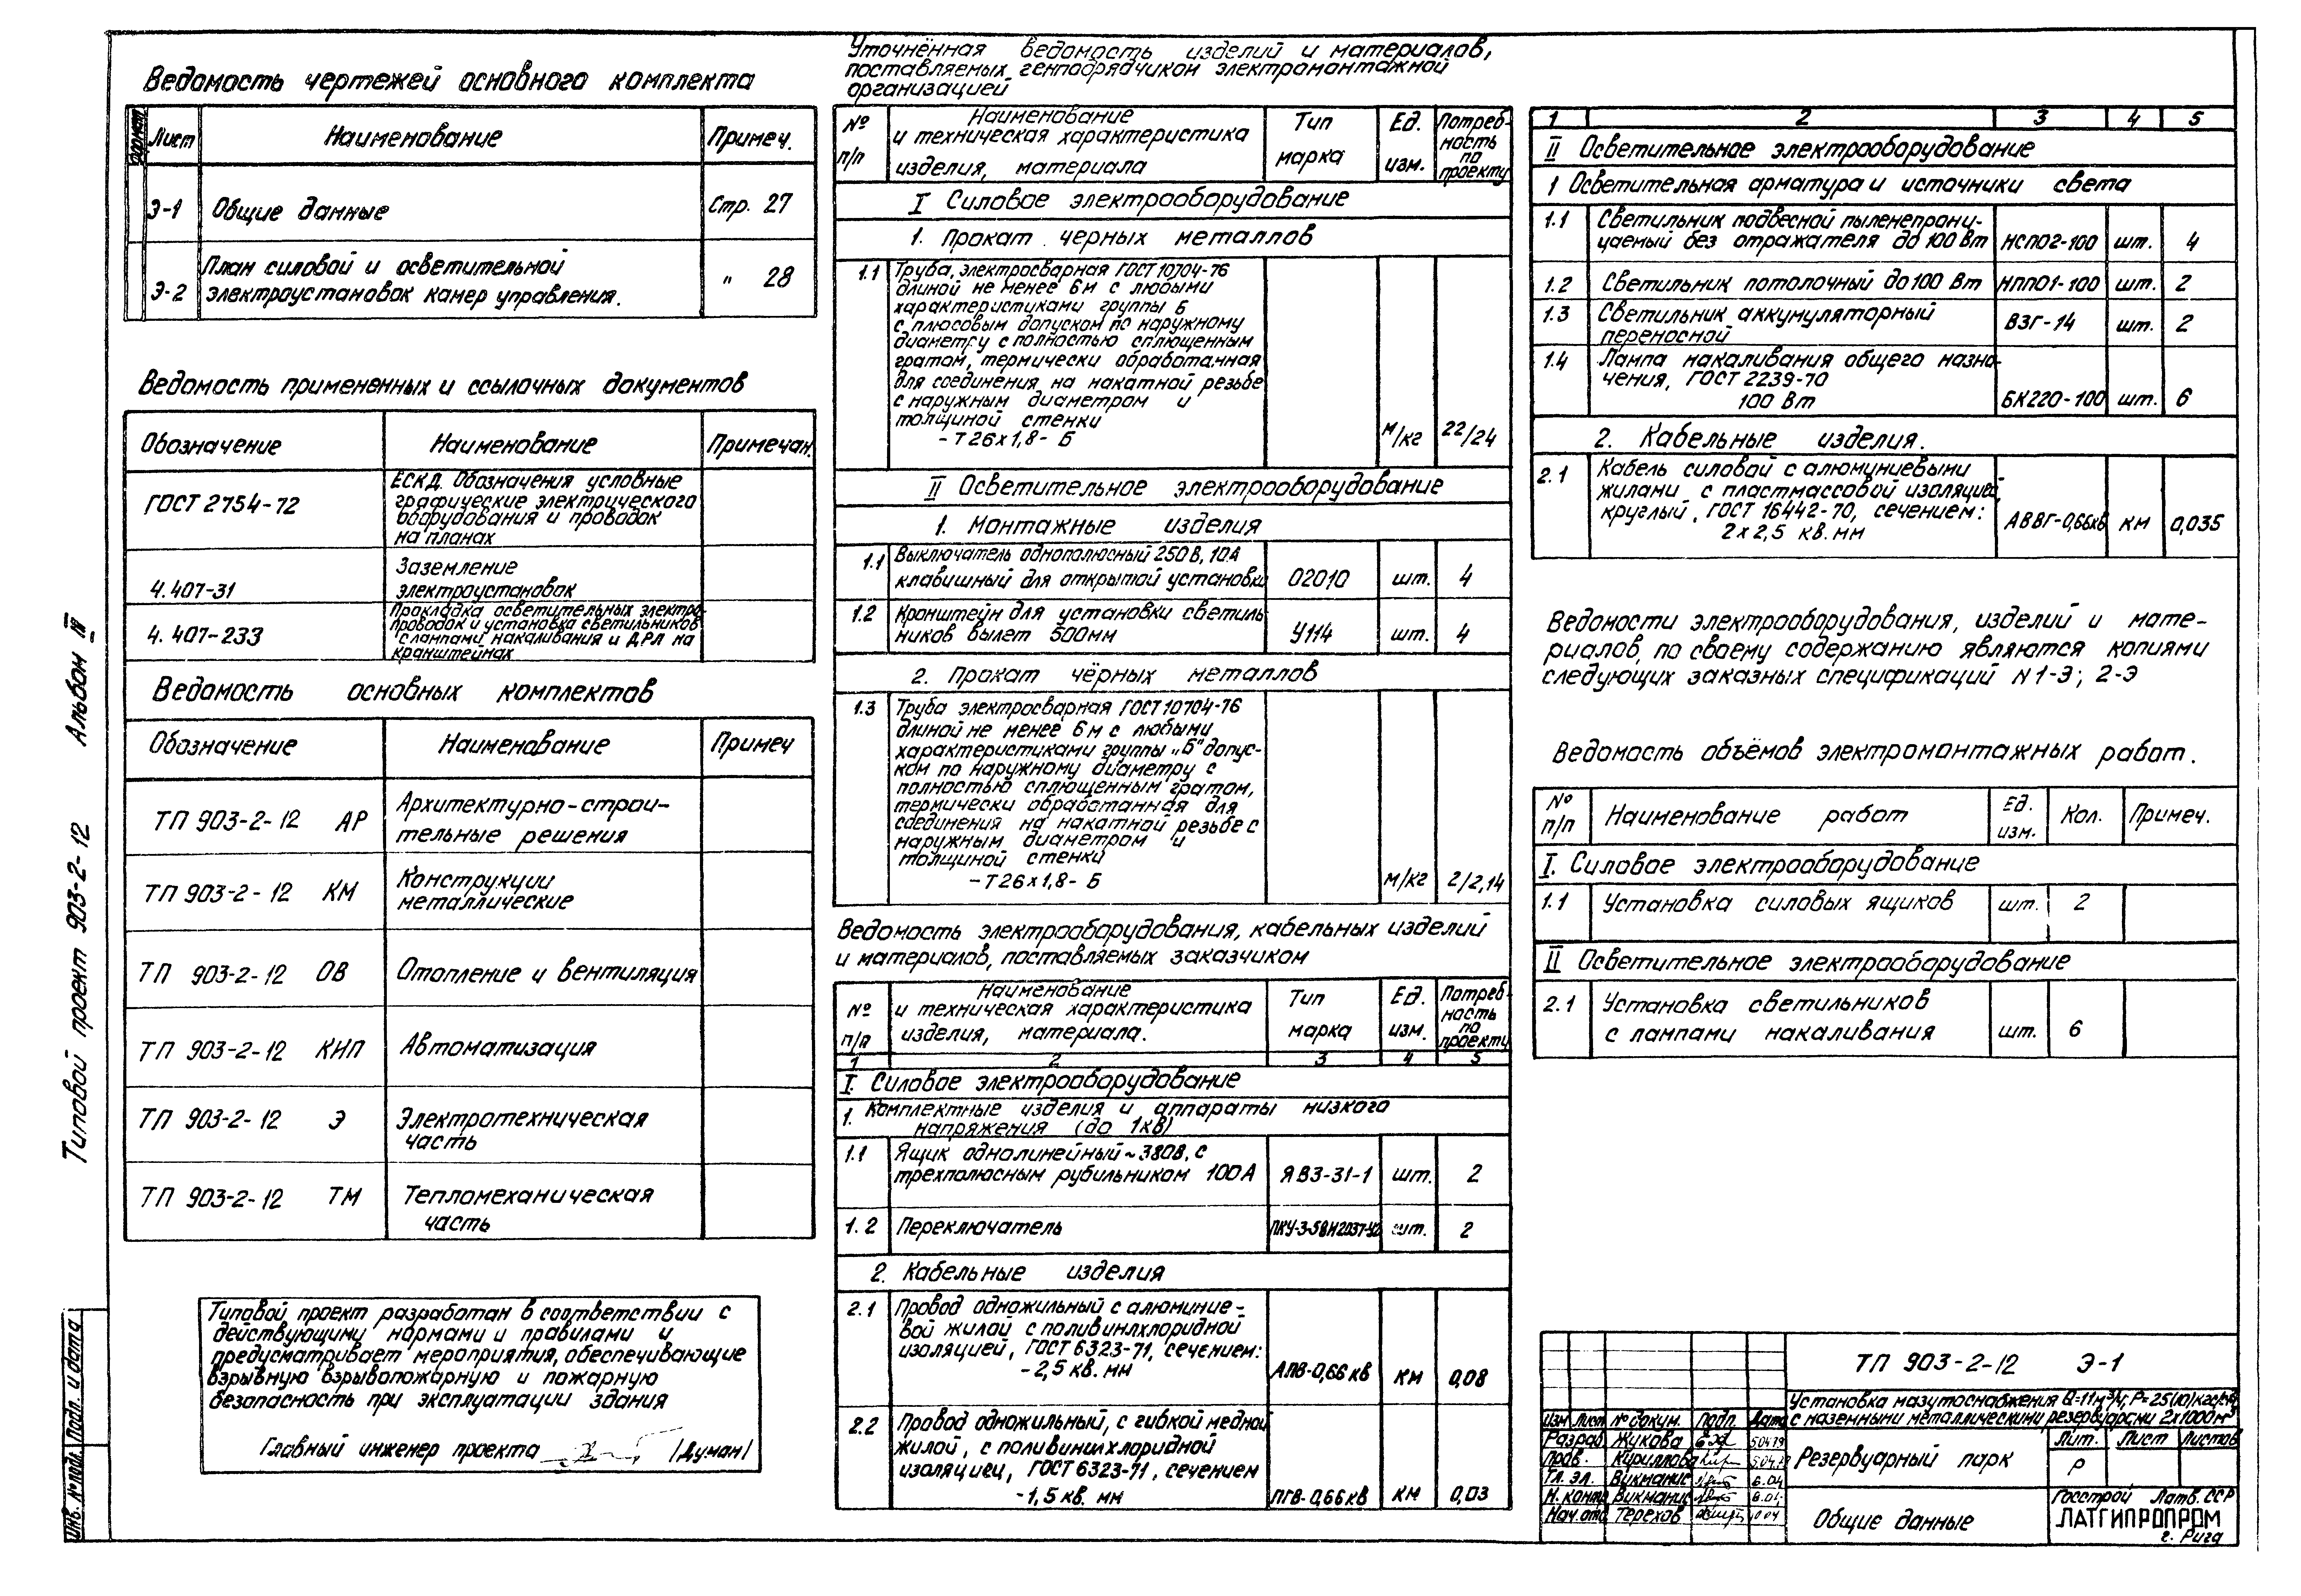 Ведомость чертежей основного комплекта
Формат Лист Наименование Примеч.
Э-1 Общие данные Стр. 27
Э-2 План силовой и осветительной
электроустановок камер управления. " 28
Ведомость примененных и ссылочных документов
Обозначение Наименование Примечан.
ГОСТ 2754-72 ЕСКД. Обозначения условные
графические электрического
оборудования и проводок
на планах
4.407-31 Заземление
электроустановок
4.407-233 Прокладка осветительных электро-
проводок и установка светильников
с лампами накаливания и ДРЛ на
кранштейнах
Ведомость основных комплектов
Обозначение Наименование Примеч
ТП 903-2-12 АР Архитектурно-строи-
тельные решения
ТП 903-2-12 КМ Конструкции
металлические
ТП 903-2-12 ОВ Отопление и вентиляция
ТП 903-2-12 КИП Автоматизация
ТП 903-2-12 Э Электротехническая
часть
ТП 903-2-12 ТМ Тепломеханическая
часть
Типовой проект разработан в соответствии с
действующими нормами и правилами и
предусматривает мероприятия, обеспечивающие
взрывную взрывопожарную и пожарную
безопасность при эксплуатации здания
Главный инженер проекта /Думан/
Типовой проект 903-2-12 Альбом IV
Инв. № подл. Подп. и дата
Уточнённая ведомость изделий и материалов,
поставляемых генподрядчиком электромонтажной
организацией
№ п/п Наименование и техническая характеристика изделия, материала Тип марка Ед. изм. Потреб-ность по проекту
I Силовое электрооборудование
1. Прокат черных металлов
1.1 Труба, электросварная ГОСТ 10704-76
длиной не менее 6м с любыми
характеристиками группы Б
с плюсовым допуском по наружному
диаметру с полностью сплющенным
гратом, термически обработанная
для соединения на накатной резьбе
с наружным диаметром и
толщиной стенки
-Т26х1,8-Б м/кг 22/24
II Осветительное электрооборудование
1. Монтажные изделия
1.1 Выключатель однополюсный 250В, 10А
клавишный для открытой установки 02010 шт. 4
1.2 Кронштейн для установки светиль-
ников вылет 500мм У114 шт. 4
2. Прокат чёрных металлов
1.3 Труба электросварная ГОСТ 10704-76
длиной не менее 6м с любыми
характеристиками группы „Б" допус-
ком по наружному диаметру с
полностью сплющенным гратом,
термически обработанная для
соединения на накатной резьбе с
наружным диаметром и
толщиной стенки
-Т26х1,8-Б м/кг 2/2,14
Ведомость электрооборудования, кабельных изделий
и материалов, поставляемых заказчиком
№ п/п Наименование и техническая характеристика изделия, материала. Тип марка Ед. изм. Потреб-ность по проекту
1 2 3 4 5
I. Силовое электрооборудование
1. Комплектные изделия и аппараты низкого
напряжения (до 1кВ)
1.1 Ящик однолинейный ~380В, с
трехполюсным рубильником 100А ЯВЗ-31-1 шт. 2
1.2 Переключатель шт. 2
2. Кабельные изделия
2.1 Провод одножильный с алюминие-
вой жилой с поливинлхлоридной
изоляцией, ГОСТ 6323-71, сечением:
-2,5 кв. мм АПВ-0,66кв км 0,08
2.2 Провод одножильный, с гибкой медной
жилой, с поливинилхлоридной
изоляцией, ГОСТ 6323-71, сечением
-1,5 кв. мм ПГВ-0,66кв км 0,03
1 2 3 4 5
II Осветительное электрооборудование
1 Осветительная арматура и источники света
1.1 Светильник подвесной пыленепрони-
цаемый без отражателя до 100Вт НСП02-100 шт. 4
1.2 Светильник потолочный до 100 Вт НПП01-100 шт. 2
1.3 Светильник аккумуляторный
переносной ВЗГ-14 шт. 2
1.4 Лампа накаливания общего назна-
чения, ГОСТ 2239-70
100 Вт БК220-100 шт. 6
2. Кабельные изделия.
2.1 Кабель силовой с алюминиевыми
жилами с пластмассовой изоляцией,
круглый, ГОСТ 16442-70, сечением:
2х2,5 кв. мм АВВГ-0,66кв км 0,035
Ведомости электрооборудования, изделий и мате-
риалов, по своему содержанию являются копиями
следующих заказных спецификаций N 1-Э; 2-Э
Ведомость объёмов электромонтажных работ.
№ п/п Наименование работ Ед. изм. Кол. Примеч.
I. Силовое электрооборудование
1.1 Установка силовых ящиков шт. 2
II Осветительное электрооборудование
2.1 Установка светильников
с лампами накаливания шт. 6
ТП 903-2-12 Э-1
Установка мазутоснабжения Q=11м³/ч, P=25(10)
с наземными металлическими резервуарами 2х1000м³
Изм Лист № докум. Подп. Дата
Разраб. Жукова 5.04.79
Пров. Кириллова 5.04.79
Гл. эл. Викманис 6.04
Н. контр Викманис 6.04
Нач. отд Терехов
Резервуарный парк
Лит. Лист Листов
Р
Общие данные
Госстрой Латв. ССР
ЛАТГИПРОПРОМ
г. Рига